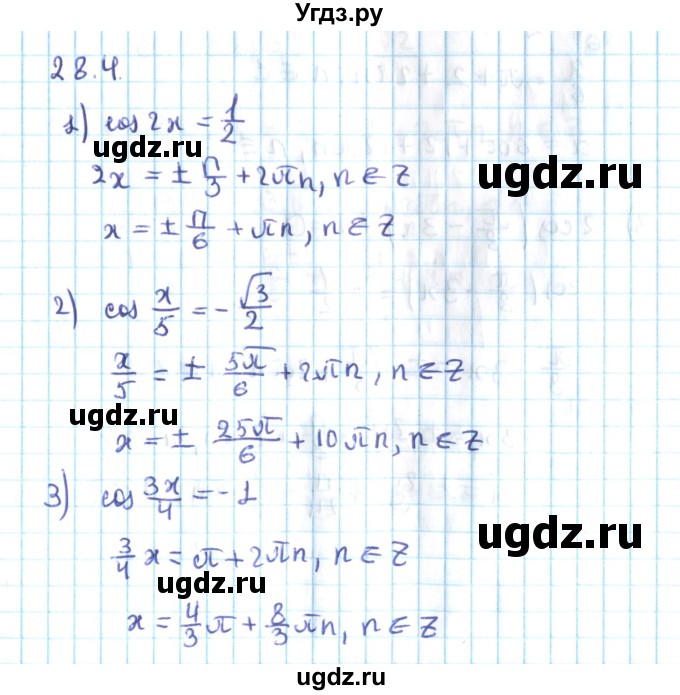 Угдз.ру
28.4.
1) cos 2x = 1/2
ugdz.ru
2x = ± π/3 + 2πn, n ∈ Z
ugdz.ru
x = ± π/6 + πn, n ∈ Z
2) cos x/5 = - √3/2
x/5 = ± 5π/6 + 2πn, n ∈ Z
ugdz.ru
x = ± 25π/6 + 10πn, n ∈ Z
3) cos 3x/4 = -1
ugdz.ru
3/4 x = π + 2πn, n ∈ Z
ugdz.ru
x = 4/3 π + 8/3 πn, n ∈ Z
ugdz.ru